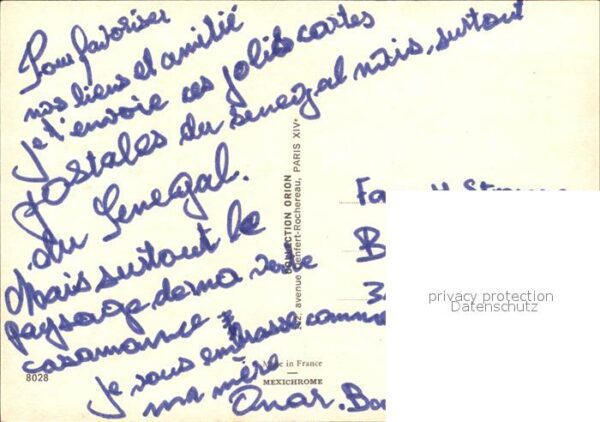 Pour favoriser
nos liens et amitié
je t'envoie ces jolies cartes
postales du senegal mais, surtout
du Senegal.
Mais surtout le
paysage de ma verte
casamance
je vous embrasse comme
ma mère
Omar. Ba
Fa
B
3
COLLECTION ORION
avenue Denfert-Rochereau, PARIS XIVe
8028
Made in France
MEXICHROME
privacy protection
Datenschutz